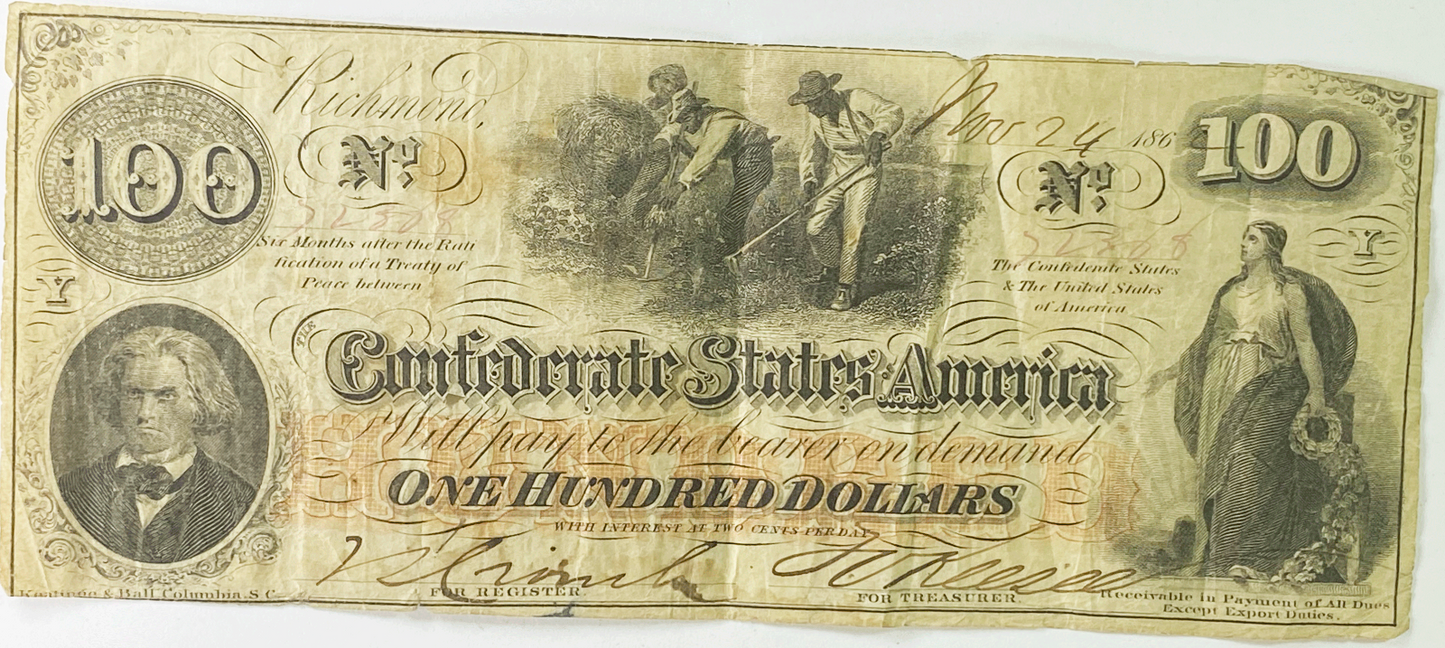 Richmond,
Nov 24 186
100
No.
No.
100
Six Months after the Rati
fication of a Treaty of
Peace between
The Confederate States
& The United States
of America
Y
Y
THE
Confederate States America
Will pay to the bearer on demand
ONE HUNDRED DOLLARS
WITH INTEREST AT TWO CENTS PER DAY
FOR REGISTER.
FOR TREASURER.
Keatinge & Ball, Columbia, S.C.
Receivable in Payment of All Dues
Except Export Duties.